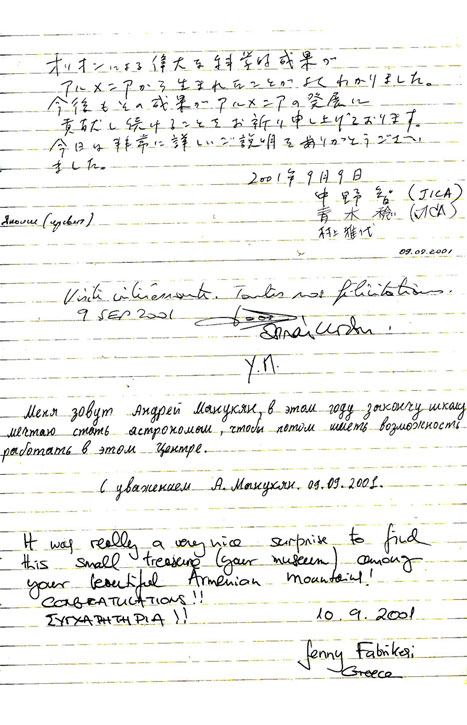 オリオンによる偉大な科学的成果が
アルメニアから生まれたことがよくわかりました。
今後もその成果がアルメニアの発展に
貢献し続けることをお祈り申し上げております。
今日は非常に詳しいご説明をありがとうござい
ました。
2001年9月9日
中野 智 (JICA)
青木 (JICA)
村上雅代
09.09.2001
Visite intéressante. Toutes nos félicitations.
9 SEP 2001
Меня зовут Андрей Манукян, в этом году закончу школу
мечтаю стать астрономом, чтобы потом иметь возможность
работать в этом Центре.
С уважением А. Манукян. 09.09.2001.
It was really a very nice surprise to find
this small treasure (your museum) among
your beautiful Armenian mountains!
CONGRATULATIONS!!
ΣΥΓΧΑΡΗΤΗΡΙΑ!!
10.9.2001
Jenny Fabrikesi
Greece